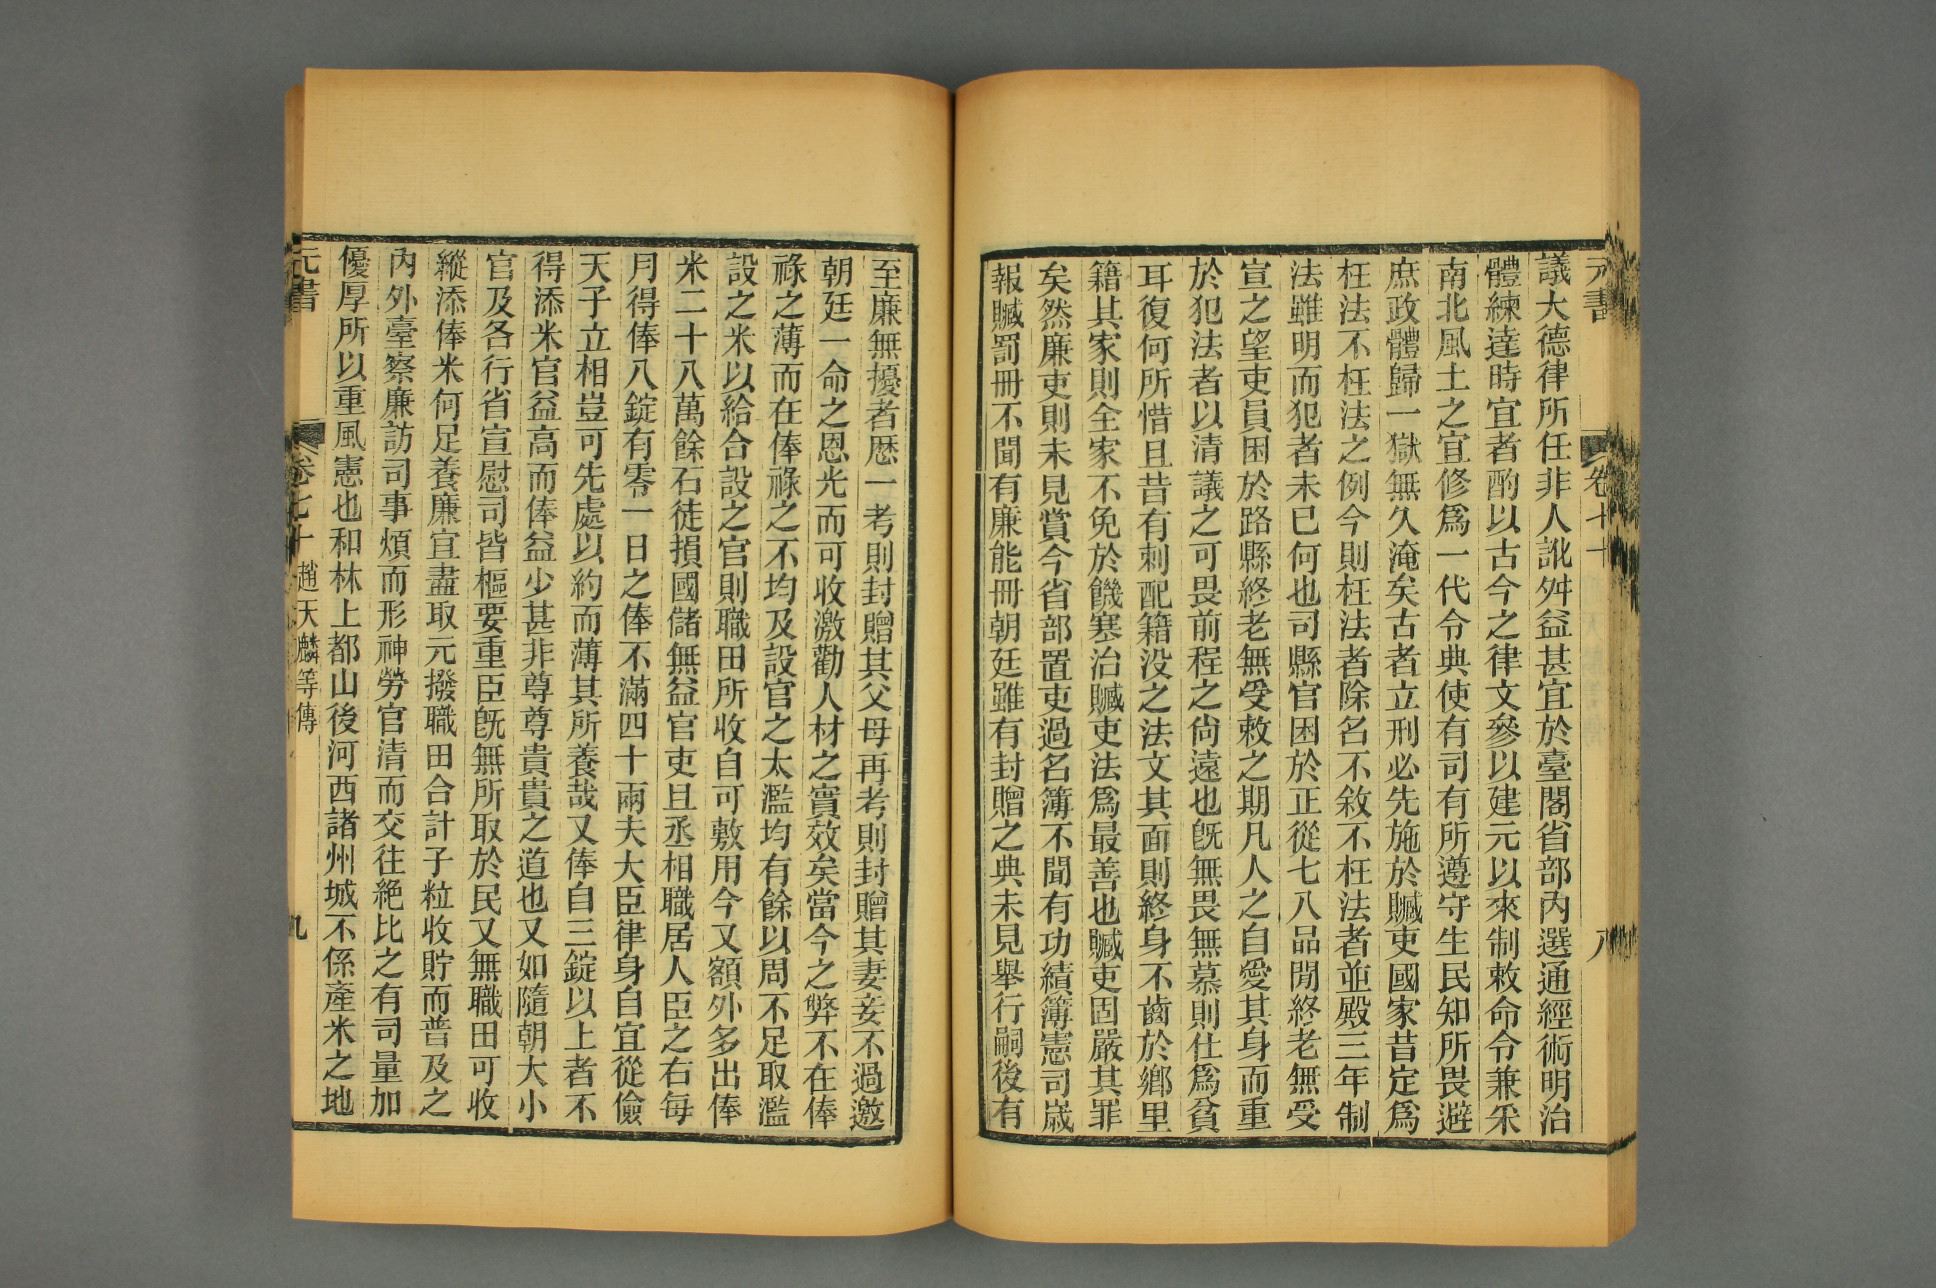 元書
卷七十
八
議大德律所任非人訛舛益甚宜於臺閣省部內選通經術明治
體練達時宜者酌以古今之律文參以建元以來制敕命令兼采
南北風土之宜修爲一代令典使有司有所遵守生民知所畏避
庶政體歸一獄無久淹矣古者立刑必先施於贓吏國家昔定爲
枉法不枉法之例今則枉法者除名不敘不枉法者並殿三年制
法雖明而犯者未已何也司縣官困於正從七八品閒終老無受
宣之望吏員困於路縣終老無受敕之期凡人之自愛其身而重
於犯法者以清議之可畏前程之尙遠也旣無畏無慕則仕爲貧
耳復何所惜且昔有刺配籍没之法文其面則終身不齒於鄉里
籍其家則全家不免於饑寒治贓吏法爲最善也贓吏固嚴其罪
矣然廉吏則未見賞今省部置吏過名簿不聞有功績簿憲司歲
報贓罰冊不聞有廉能冊朝廷雖有封贈之典未見舉行嗣後有
至廉無擾者歷一考則封贈其父母再考則封贈其妻妾不過邀
朝廷一命之恩光而可收激勸人材之實效矣當今之弊不在俸
祿之薄而在俸祿之不均及設官之太濫均有餘以周不足取濫
設之米以給合設之官則職田所收自可敷用今又額外多出俸
米二十八萬餘石徒損國儲無益官吏且丞相職居人臣之右每
月得俸八錠有零一日之俸不滿四十兩夫大臣律身自宜從儉
天子立相豈可先處以約而薄其所養哉又俸自三錠以上者不
得添米官益高而俸益少甚非尊尊貴貴之道也又如隨朝大小
官及各行省宣慰司皆樞要重臣旣無所取於民又無職田可收
縱添俸米何足養廉宜盡取元撥職田合計子粒收貯而普及之
內外臺察廉訪司事煩而形神勞官清而交往絕比之有司量加
優厚所以重風憲也和林上都山後河西諸州城不係產米之地
元書
卷七十
趙天麟等傳
九